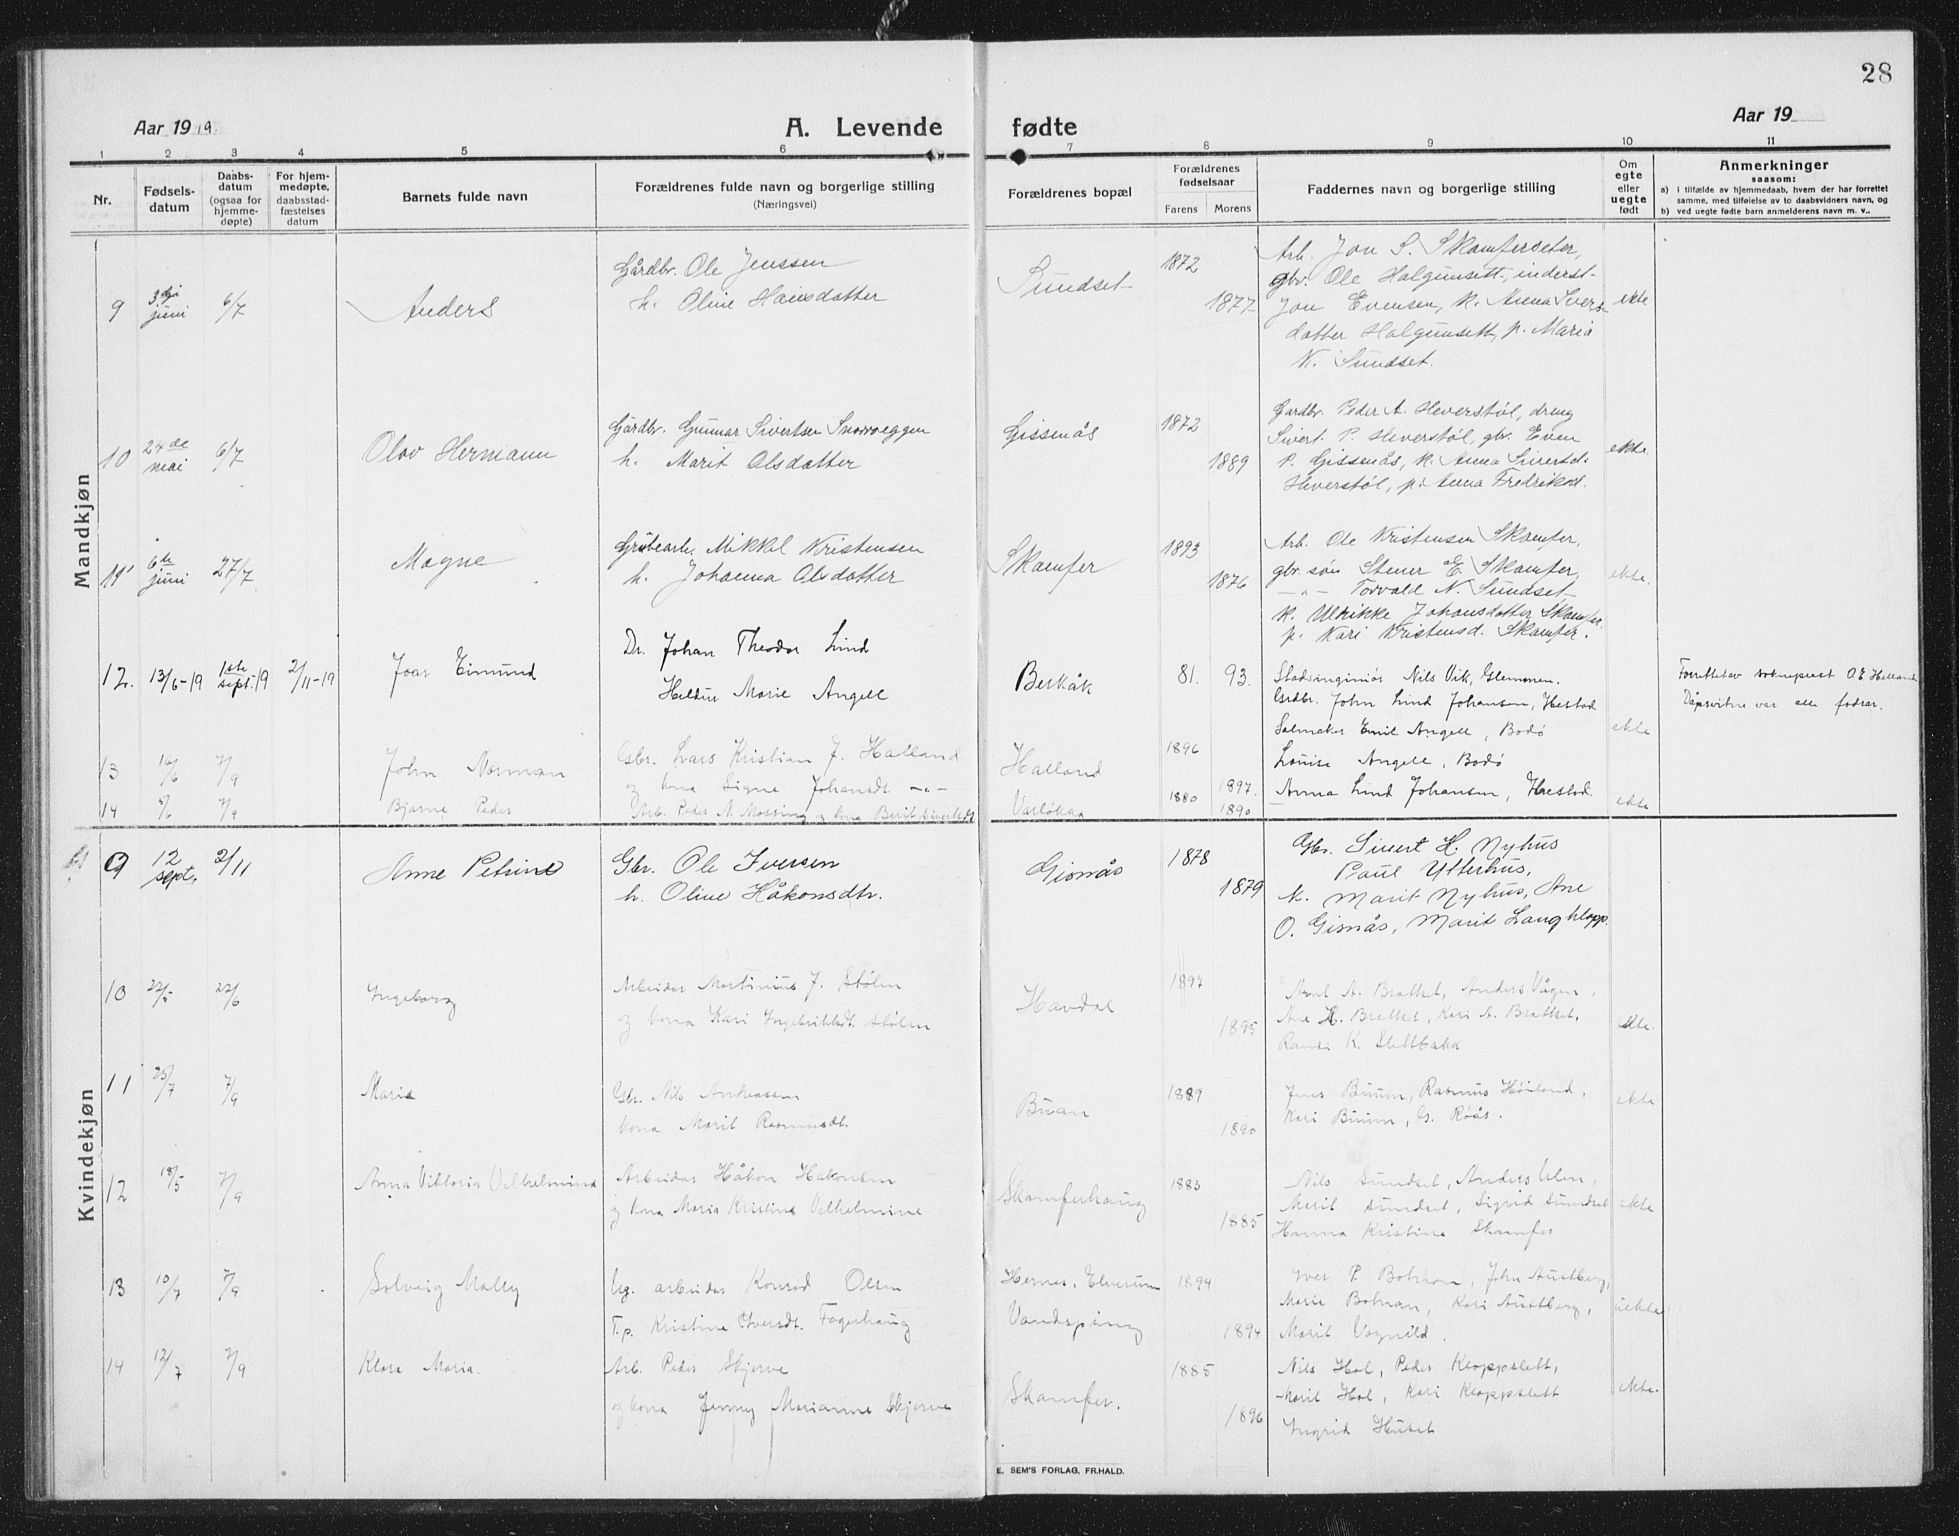 28
Aar 1919.
A. Levende fødte
Aar 19
1 2 3 4 5 6 7 8 9 10 11
Nr.
Fødsels-
datum
Daabs-
datum
(ogsaa for
hjemme-
døpte)
For hjem-
medøpte,
daabsstad-
fæstelses
datum
Barnets fulde navn
Forældrenes fulde navn og borgerlige stilling
(Næringsvei)
Forældrenes bopæl
Forældrenes
fødselsaar
Farens Morens
Faddernes navn og borgerlige stilling
Om
egte
eller
uegte
født
Anmerkninger
saasom:
a) i tilfælde av hjemmedaab, hvem der har forrettet
samme, med tilføielse av to daabsvidners navn, og
b) ved uegte fødte barn anmelderens navn m. v..
Mandkjøn
9
juni
6/7
Anders
Gårdbr. Ole Jenssen
h. Oline Hansdatter
Sundset
1872
1877
Arb. Jon S. Skamferseter,
gbr. Ole Halgunsett, inderst
Jon Evensen, k. Anna Sivers-
datter Halgunsett, p. Maria
N. Sundset.
ekte
10
24de
mai
6/7
Olov Hermann
Gårdbr. Gunnar Sivertsen Snoxveggen
h. Marit Olsdatter
Gissenås
1872
1889
Gardbr. Peder A. Heverstøl, dreng
Sivert P. Heverstøl, gbr. Even
P. Gissenås, k. Anna Sivertsd.
Heverstøl, p. Anna Fredriksd.
ekte
11
6te
juni
27/7
Magne
Grubearb. Mikkel Kristensen
h. Johanna Olsdatter
Skamfer
1893
1876
Arb. Ole Kristensen Skamfer,
gbr. søn Stener E. Skamfer,
—„— Torvald N. Sundset
k. Ulrikke Johansdatter Skamfer
p. Kari Kristensd. Skamfer.
ekte.
12.
13/6-19
1ste
sept. 19
2/11-19
Joar Eimund
Dr. Johan Theodor Lind
Heldur Marie Angell
Berkåk
81. 93.
Stadsingeniør Nils Vik, Glemmen.
Grdbr. John Lind Johansen, Hestad
Salmaker Emil Angell, Bodø
Louise Angell, Bodø
Anna Lind Johansen, Hestad.
ekte
Forrettet av sokneprest O. E. Helland
Dåpsvitne var alle fadrar.
13
16/6
7/9
John Norman
Gbr. Lars Kristian J. Halland
og kona Signe Johansdt. —„—
Halland
1896
1897.
14
7/9
Bjarne Peder
Arb. Peder N. Mossing og kona Berit Sivertsdt
Varløkka
1880
1890
ekte
Kvindekjøn
9
12
sept.
2/11
Anne Petrine
Gbr. Ole Iversen
h. Oline Håkonsdtr.
Gisnås
1878
1879
Gbr. Sivert H. Nyhus
Paul Ytterhus,
K. Marit Nyhus, Ane
O. Gisnås, Marit Langklopp.
10
22/5
22/6
Ingeborg
Arbeidar Martinius J. Stølen
og kona Kari Ingebriktsdt. Stølen
Havdal
1897
1895
Arnt A. Brattset, Anders Vågen,
Ane H. Brattset, Kari A. Brattset,
Randi K. Slettbakk
ekte.
11
25/7
7/9
Maria
Gbr. Nils Andreassen
kona Marit Rasmusdt.
Buan
1889
1890
Jens Buum, Rasmus Høiland,
Kari Buum, G. Røås.
ekte
12
18/5
7/9
Anna Viktoria Vilhelmina
Arbeidar Håkon Hakonsen
og kona Maria Kristina Vilhelmine
Skamferhaug
1883
1885
Nils Sundset, Anders Ulen,
Marit Sundset, Sigrid Sundset
Hanna Kristine Skamfer
ekte
13
10/7
7/9
Solveig Molly
Ug. arbeidar Konrad Olsen
T.p. Kristine Iversdt. Fagerhaug
Hernes, Elverum
Vandspring
1894
1894
Iver P. Bohnan, John Austberg,
Marie Bohnan, Kari Austberg,
Marit Vognild.
uekte
14
12/7
7/9
Klara Maria.
Arb. Peder Skjerve
og kona Jenny Marianne Skjerve
Skamfer.
1885
1896
Nils Hol, Peder Kloppslett,
Marit Hol, Kari Kloppslett
Ingrid Huset
ekte.
E. SEM'S FORLAG, FR.HALD.